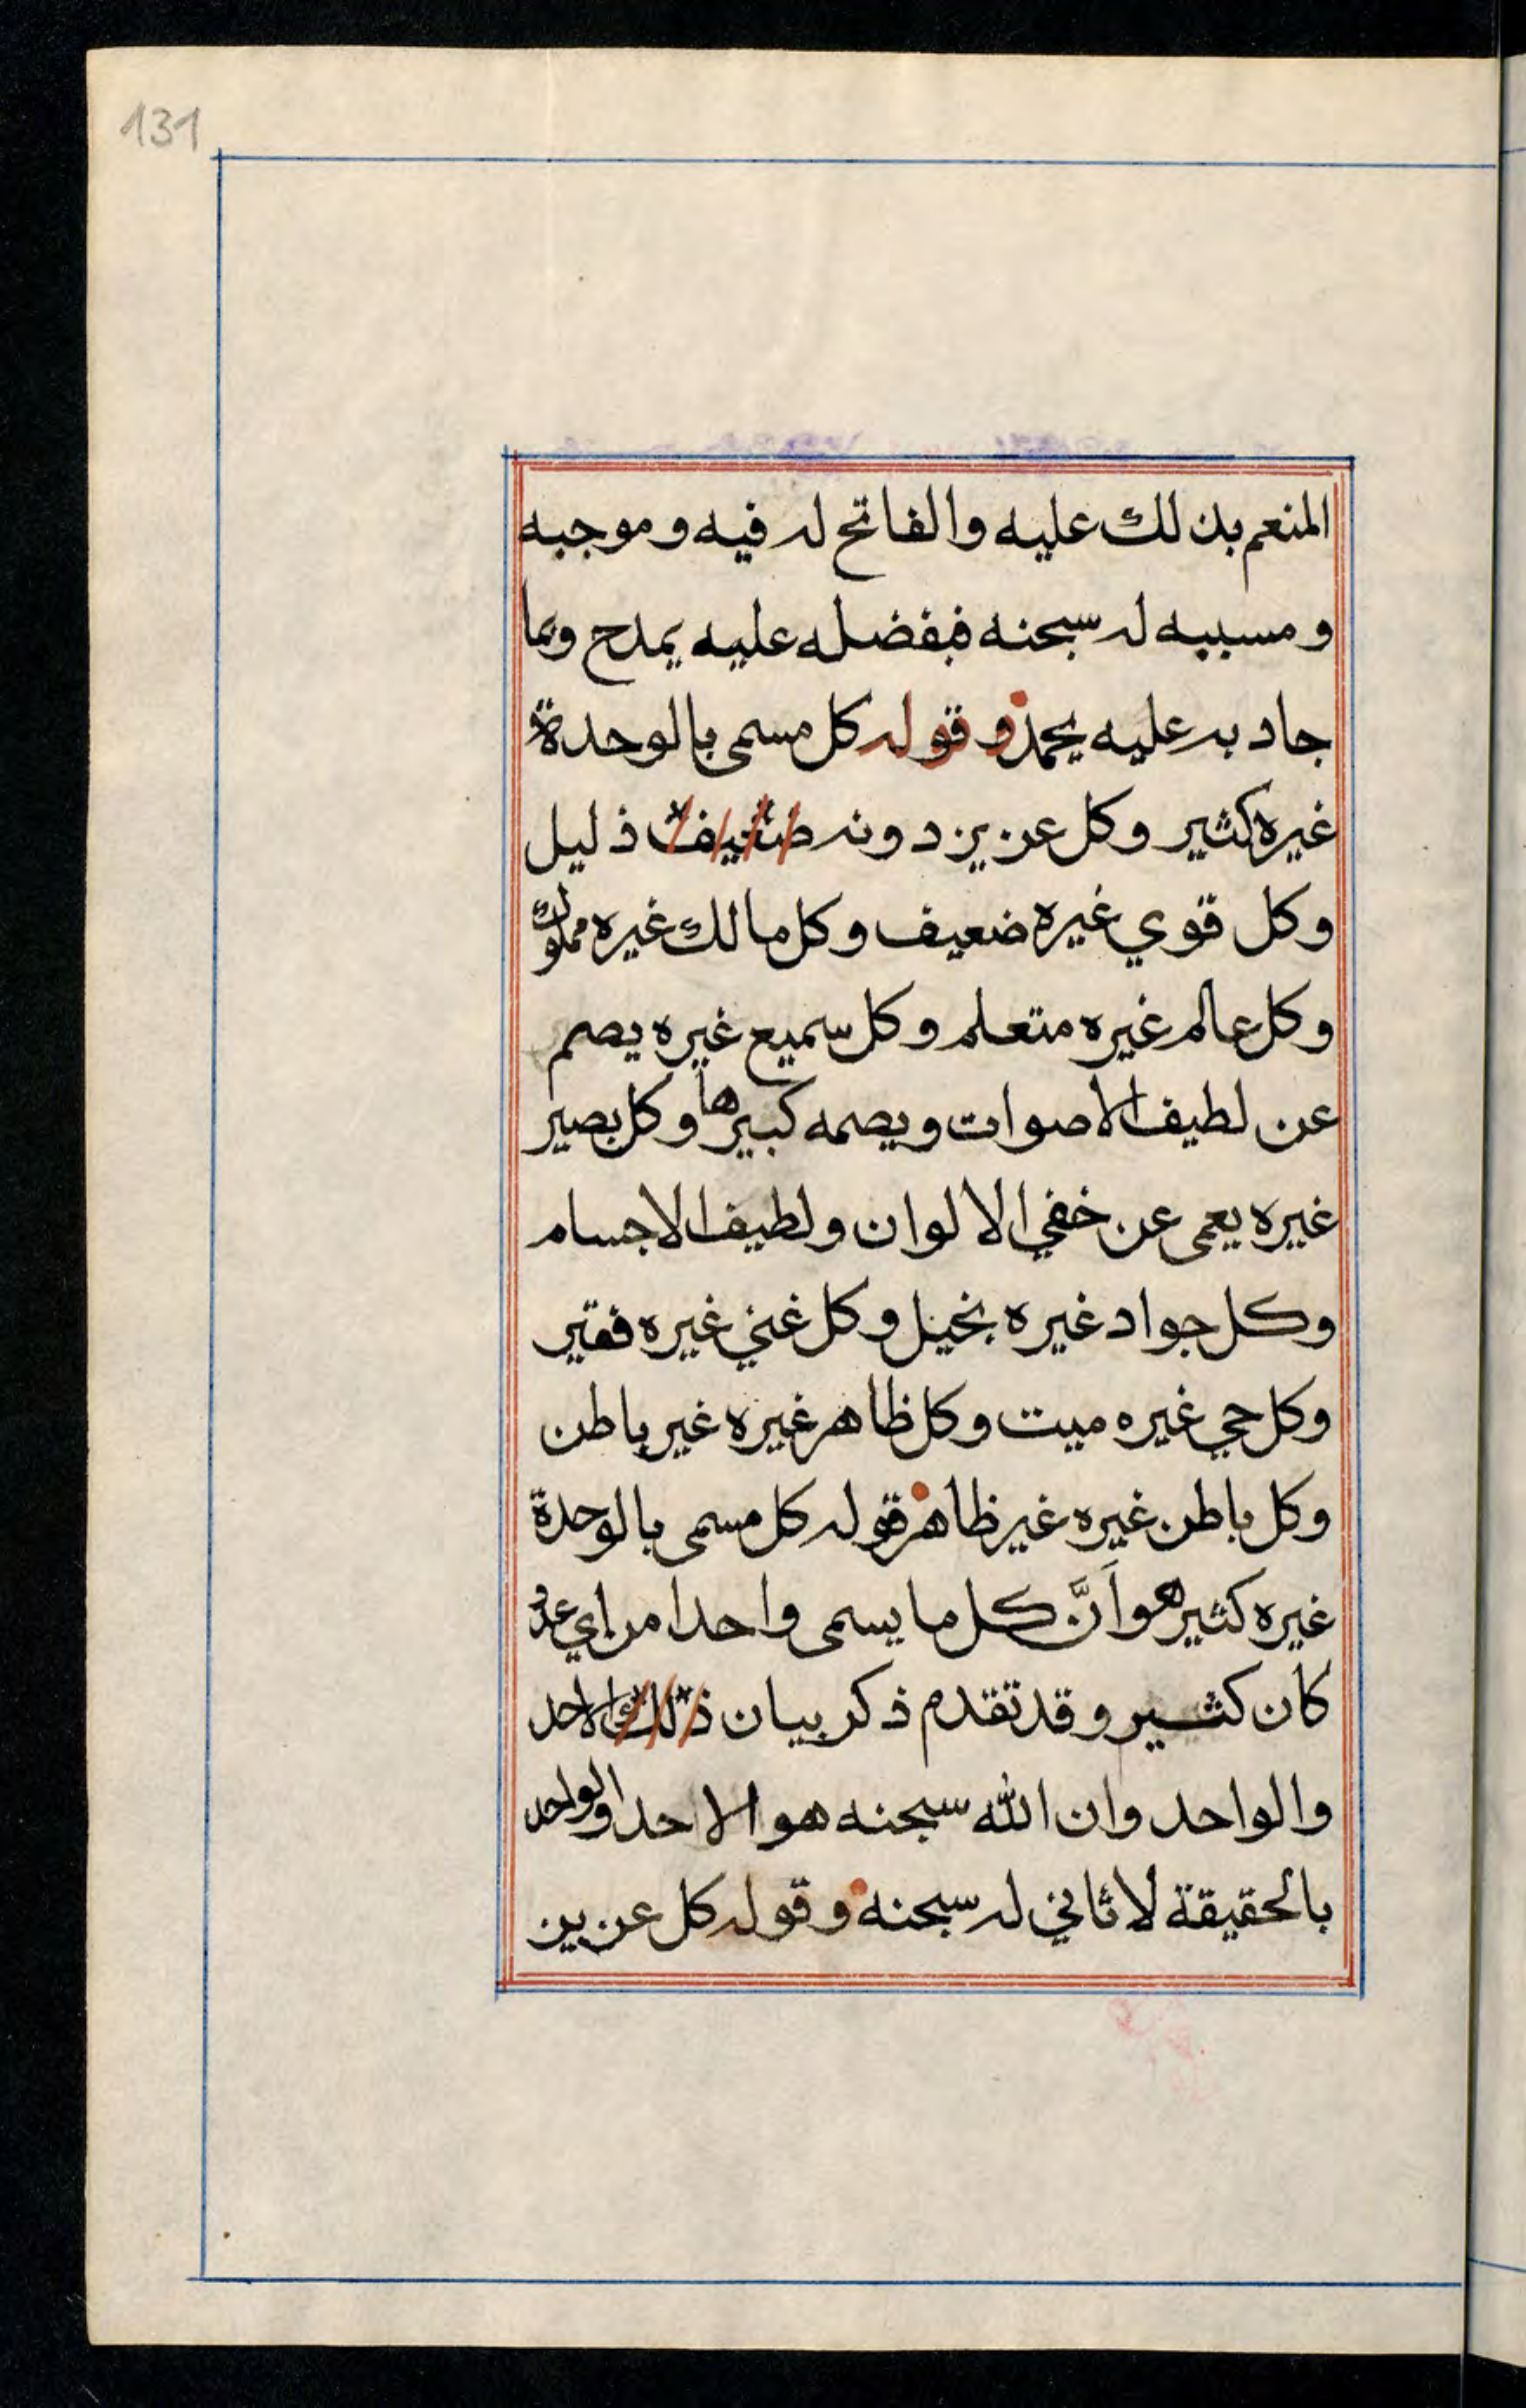 131
المنعم بذلك عليه والفاتح له فيه وموجبه
ومسببه له سبحنه فبفضله عليه يمدح وبما
جاد به عليه يحمد وقوله كل مسمى بالوحدة
غيره كثير وكل عزيز دونه ضعيف ذليل
وكل قوي غيره ضعيف وكل مالك غيره مملوك
وكل عالم غيره متعلم وكل سميع غيره يصم
عن لطيف الاصوات ويصمه كبيرها وكل بصير
غيره يعمى عن خفي الالوان ولطيف الاجسام
وكل جواد غيره بخيل وكل غني غيره فقير
وكل حي غيره ميت وكل ظاهر غيره غير باطن
وكل باطن غيره غير ظاهر قوله كل مسمى بالوحدة
غيره كثير هو اَنَّ كل ما يسمى واحدا من اي عدد
كان كثير وقد تقدم ذكر بيان ذلك الاحد
والواحد وان الله سبحنه هو الاحد والواحد
بالحقيقة لا ثاني له سبحنه وقوله كل عزيز